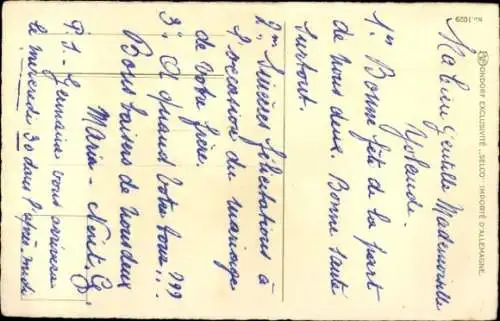 No. 1029
BONDORF EXCLUSIVITÉ „SELCO" IMPORTÉ D'ALLEMAGNE.
Ma bien gentille Mademoiselle
Yolande.
1er Bonne fête de la part
de nous deux. Bonne santé
surtout.
2m Sincères félicitations à
l'occasion du mariage
de votre frère.
3° A quand votre tour ???
Bons baisers de nous deux
Maria - Nest. G.
P.S - Germaine vous arrivera
le mercredi 30 dans l'après-midi